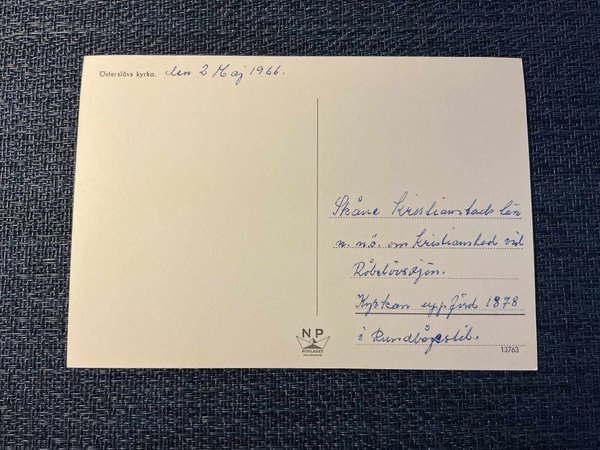 Österslövs kyrka. den 2 Maj 1966.
Skåne Kristianstads län
n. nö. om Kristianstad vid
Råbelövssjön.
Kyrkan uppförd 1878
i Rundbågestil.
NP
FÖRLAGET
13763